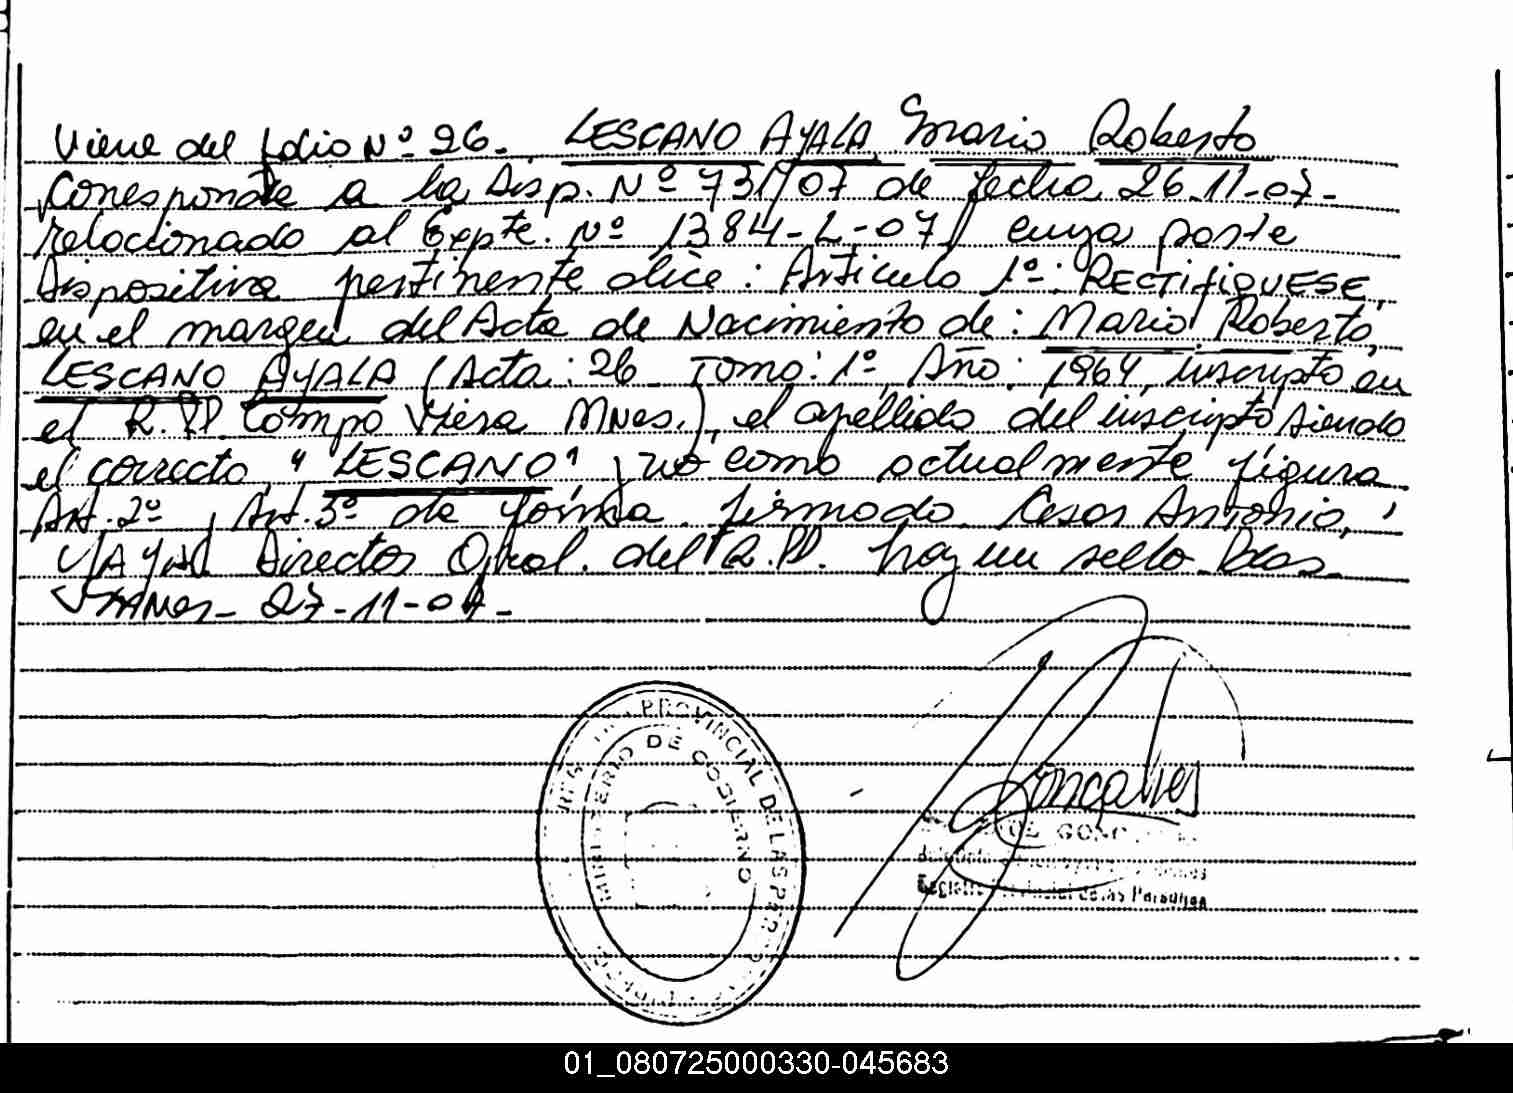 Viene del folio Nº 26. LESCANO AYALA Mario Roberto
Corresponde a la Disp. Nº 731/07 de fecha 26.11-07-
relacionado al Expte. Nº 1384-L-07, cuya parte
dispositiva pertinente dice: Artículo 1º: RECTIFIQUESE,
en el margen del Acta de Nacimiento de: Mario Roberto
LESCANO AYALA (Acta: 26 Tomo: 1º, Año: 1964, inscripto en
el R.PP. Campo Viera Mnes.), el apellido del inscripto siendo
el correcto, "LESCANO", no como actualmente figura
Art. 2º, Art. 3º de forma. firmado Cesar Antonio,
Director Gral. del R.PP. hay un sello. Pdas.
27-11-07-
PROVINCIAL DE LAS PER
MINISTERIO DE GOBIERNO
Goncalves
Registro Provincial de las Personas
01_080725000330-045683